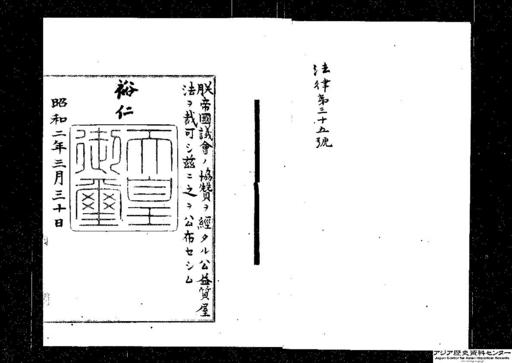 法律第三十五號
朕帝國議會ノ協贊ヲ經タル公益質屋
法ヲ裁可シ茲ニ之ヲ公布セシム
裕仁
天皇
御璽
昭和二年三月三十日
アジア歴史資料センター
Japan Center for Asian Historical Records